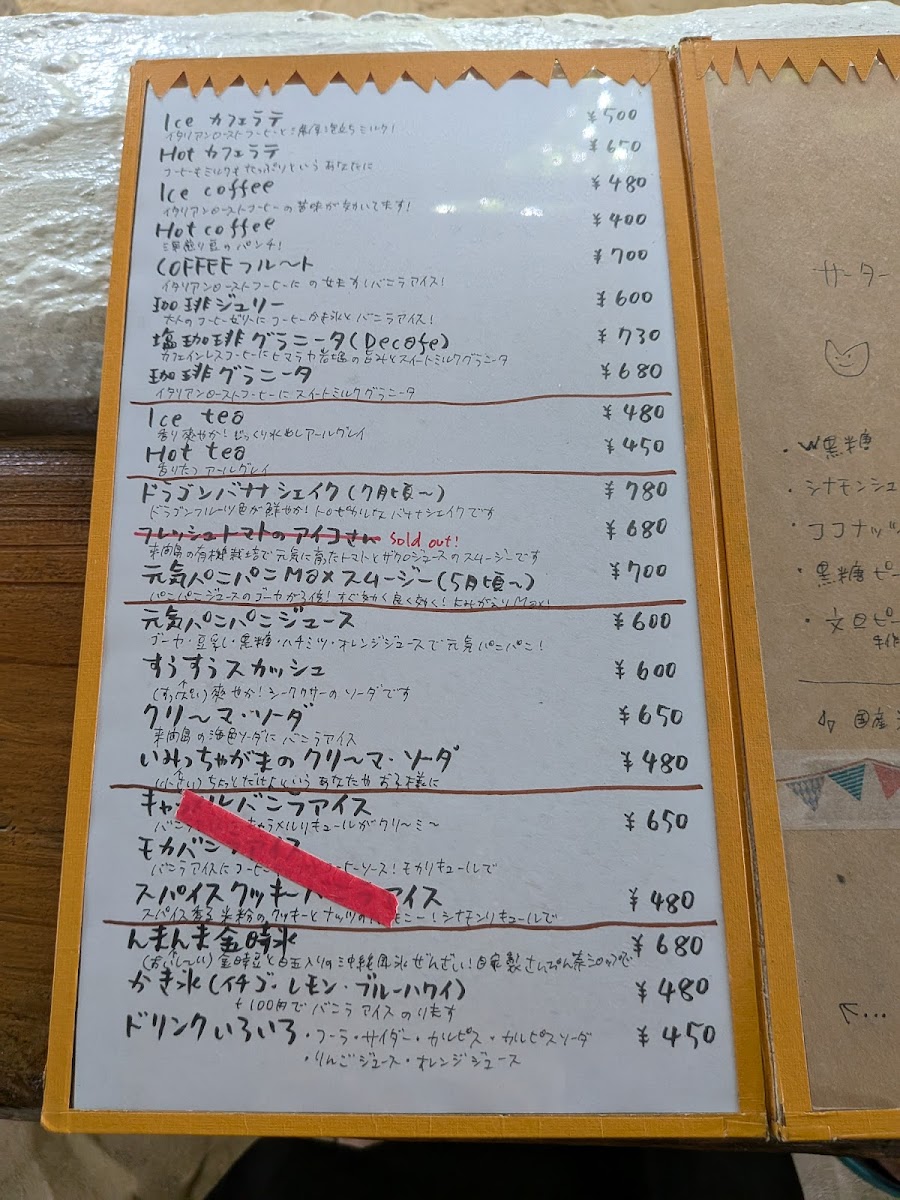 Ice カフェラテ ¥500
イタリアンローストコーヒーと濃厚泡立ちミルク!
Hot カフェラテ ¥650
コーヒーもミルクもたっぷりという あなたに
Ice coffee ¥480
イタリアンローストコーヒーの苦味が効いてます!
Hot coffee ¥400
深煎り豆のパンチ!
COFFEEフルート ¥700
イタリアンローストコーヒーに のせます!バニラアイス!
珈琲ジュリー ¥600
大人のコーヒーゼリーにコーヒーかき氷とバニラアイス!
塩珈琲グラニータ(Decafe) ¥730
カフェインレスコーヒーにヒマラヤ岩塩の旨みとスイートミルクグラニータ
珈琲グラニータ ¥680
イタリアンローストコーヒーに スイートミルクグラニータ
Ice tea ¥480
香り爽やか!じっくり水出しアールグレイ
Hot tea ¥450
香りたつアールグレイ
ドラゴンバナナシェイク(7月頃〜) ¥780
ドラゴンフルーツ色が鮮やか!トロピカルなバナナシェイクです
フレッシュトマトのアイコさん sold out! ¥680
来間島の有機栽培で元気に育ったトマトとザクロジュースのスムージーです
元気パニパニMaxスムージー(5月頃〜) ¥700
パニパニジュースのゴーヤが3倍!すぐ効く良く効く!よみがえりMax!
元気パニパニジュース ¥600
ゴーヤ・豆乳・黒糖・ハチミツ・オレンジジュースで元気パニパニ!
すうすうスカッシュ ¥600
爽やか!シークワサーのソーダです
クリ〜マ・ソーダ ¥650
来間島の海色ソーダに バニラアイス
いみっちゃがまのクリ〜マ・ソーダ ¥480
(小さい)ちょっとだけよという あなたやお子様に
キャ ルバニラアイス ¥650
バニラ キャラメルリキュールがクリ〜ミ〜
モカバニ
バニラアイスにコーヒー ーヒーソース!モカリキュールで
スパイスクッキー アイス ¥480
スパイス香る米粉のクッキーとナッツの モニー!シナモンリキュールで
んまんま金時氷 ¥680
(おいし〜い)金時豆と白玉入りの沖縄風氷ぜんざい!自家製さんぴん茶シロップで
かき氷(イチゴ・レモン・ブルーハワイ) ¥480
+100円で バニラアイスのります
ドリンクいろいろ ・コーラ・サイダー・カルピス・カルピスソーダ ¥450
・りんごジュース・オレンジジュース
サーター
・W黒糖
・シナモンシュ
・ココナッツ
・黒糖ピー
・文旦ピー
手作
国産
←...